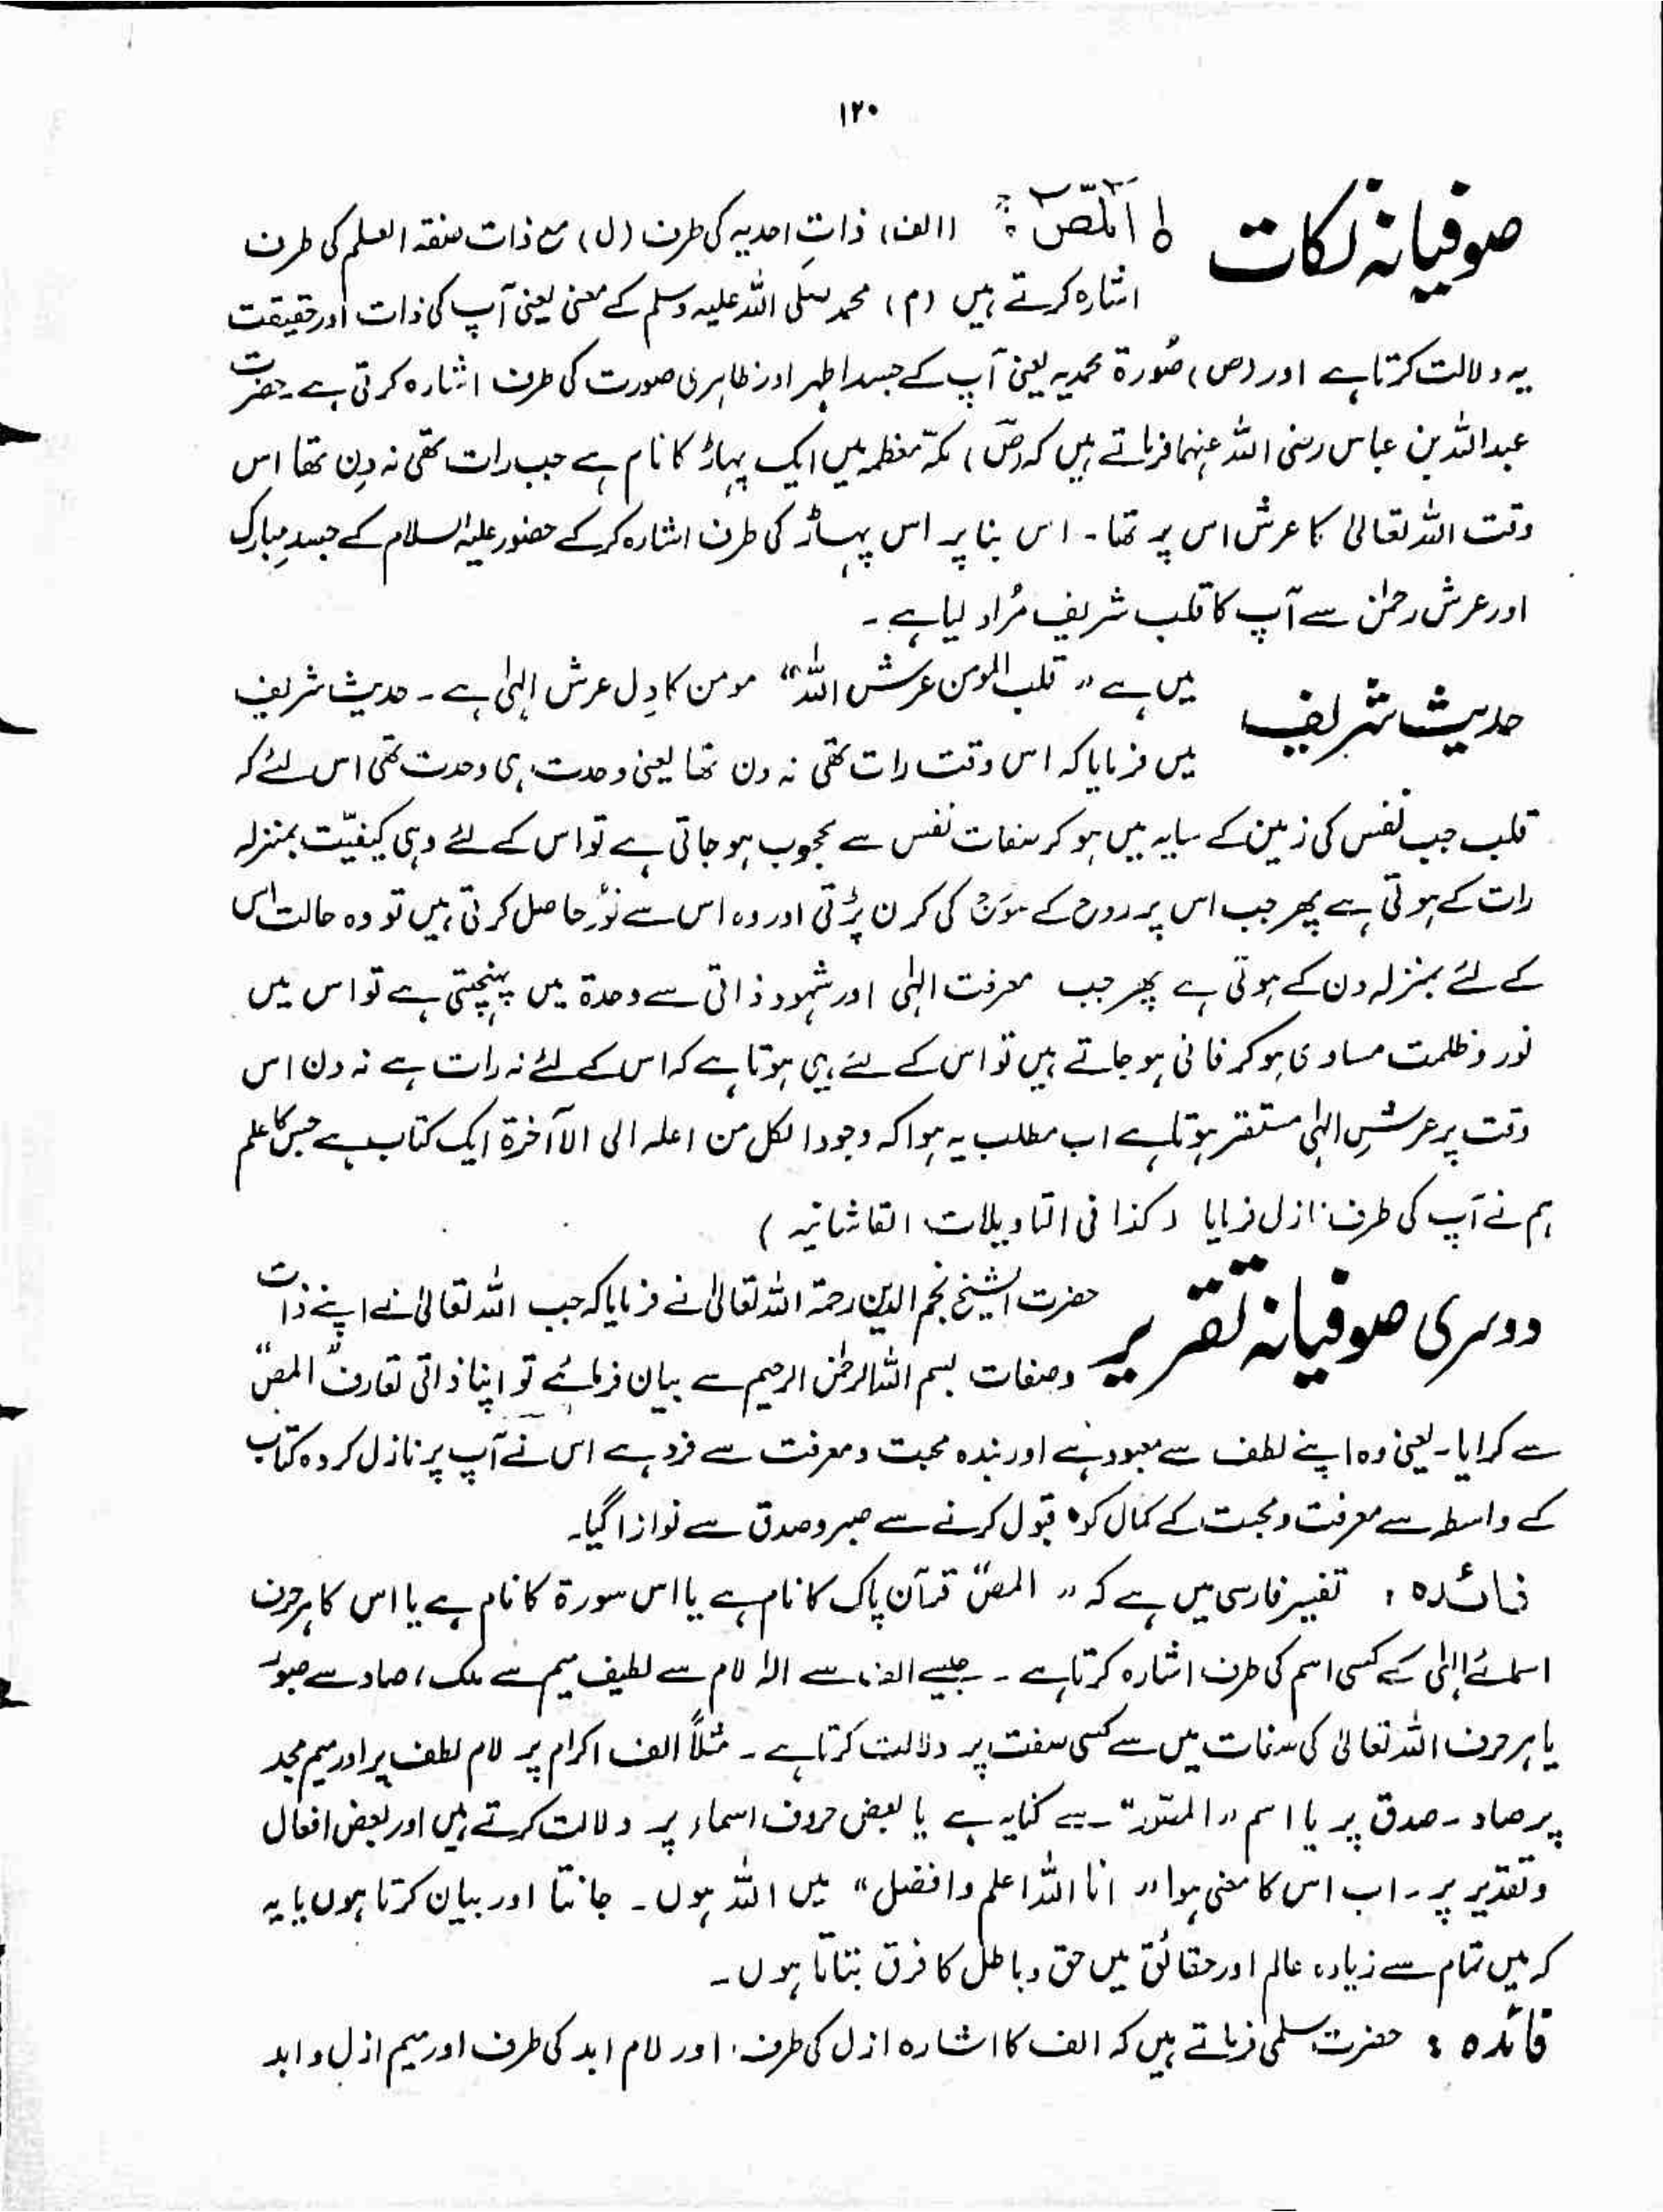 ۱۲۰
صوفیانہ نکات ○ الٓمّٓصٓ ؕ (الف) ذاتِ احدیہ کی طرف (ل) مع ذات صفتہ العلم کی طرف
اشارہ کرتے ہیں (م) محمد صلی اللہ علیہ وسلم کے معنی یعنی آپ کی ذات اور حقیقت
پہ دلالت کرتا ہے اور (ص) صُورۃ محمدیہ یعنی آپ کے جسد اطہر اور ظاہری صورت کی طرف اشارہ کرتی ہے۔ حضرت
عبداللہ بن عباس رضی اللہ عنہما فرماتے ہیں کہ (صٓ) مکہّ معظمہ میں ایک پہاڑ کا نام ہے جب رات تھی نہ دِن تھا اس
وقت اللہ تعالیٰ کا عرش اس پر تھا۔ اس بنا پر اس پہاڑ کی طرف اشارہ کر کے حضور علیہ السلام کے جسدِ مبارک
اور عرش رحمٰن سے آپ کا قلب شریف مُراد لیا ہے۔
حدیث شریف میں ہے ”قلب المومن عرش اللہ“ مومن کا دِل عرش الٰہی ہے۔ حدیث شریف
میں فرمایا کہ اس وقت رات تھی نہ دن تھا یعنی وحدت ہی وحدت تھی اس لئے کہ
قلب جب نفس کی زمین کے سایہ میں ہو کر صفات نفس سے محجوب ہو جاتی ہے تو اس کے لئے وہی کیفیّت بمنزلہ
رات کے ہوتی ہے پھر جب اس پر روح کے سورج کی کرن پڑتی اور وہ اس سے نُور حاصل کرتی ہیں تو وہ حالت اس
کے لئے بمنزلہ دن کے ہوتی ہے پھر جب معرفت الٰہی اور شہود ذاتی سے وحدۃ میں پہنچتی ہے تو اس میں
نور و ظلمت مساوی ہو کر فانی ہو جاتے ہیں تو اس کے لئے یہی ہوتا ہے کہ اس کے لئے نہ رات ہے نہ دن اس
وقت پر عرشِ الٰہی مستقر ہوتا ہے اب مطلب یہ ہوا کہ وجود الکل من اعلہ الی الآخرۃ ایک کتاب ہے جس کا علم
ہم نے آپ کی طرف نازل فرمایا (کذا فی التاویلات القاشانیہ)
دوسری صوفیانہ تقریر حضرت الشیخ نجم الدین رحمۃ اللہ تعالیٰ نے فرمایا کہ جب اللہ تعالیٰ نے اپنے ذات
وصفات بسم اللہ الرحمٰن الرحیم سے بیان فرمائے تو اپنا ذاتی تعارف ”المصٓ“
سے کرایا۔ یعنی وہ اپنے لطف سے معبود ہے اور بندہ محبت و معرفت سے فرد ہے اس نے آپ پر نازل کردہ کتاب
کے واسطہ سے معرفت و محبت کے کمال کو قبول کرنے سے صبر و صدق سے نوازا گیا۔
فائدہ : تفسیر فارسی میں ہے کہ ”المصٓ“ قرآن پاک کا نام ہے یا اس سورۃ کا نام ہے یا اس کا ہر حرف
اسمائے الٰہی کے کسی اسم کی طرف اشارہ کرتا ہے۔ جیسے الف سے الہٰ لام سے لطیف میم سے ملک، صاد سے صبور
یا ہر حرف اللہ تعالیٰ کی صفات میں سے کسی صفت پر دلالت کرتا ہے۔ مثلاً الف اکرام پر لام لطف پر اور میم مجد
پر صاد۔ صدق پر یا اسم ”المصور“ سے کنایہ ہے یا بعض حروف اسماء پر دلالت کرتے ہیں اور بعض افعال
و تقدیر پر۔ اب اس کا معنی ہوا ”انا اللہ اعلم و افضل“ میں اللہ ہوں۔ جانتا اور بیان کرتا ہوں یا یہ
کہ میں تمام سے زیادہ عالم اور حقائق میں حق و باطل کا فرق بتاتا ہوں۔
فائدہ : حضرت سلمی فرماتے ہیں کہ الف کا اشارہ ازل کی طرف، اور لام ابد کی طرف اور میم ازل و ابد